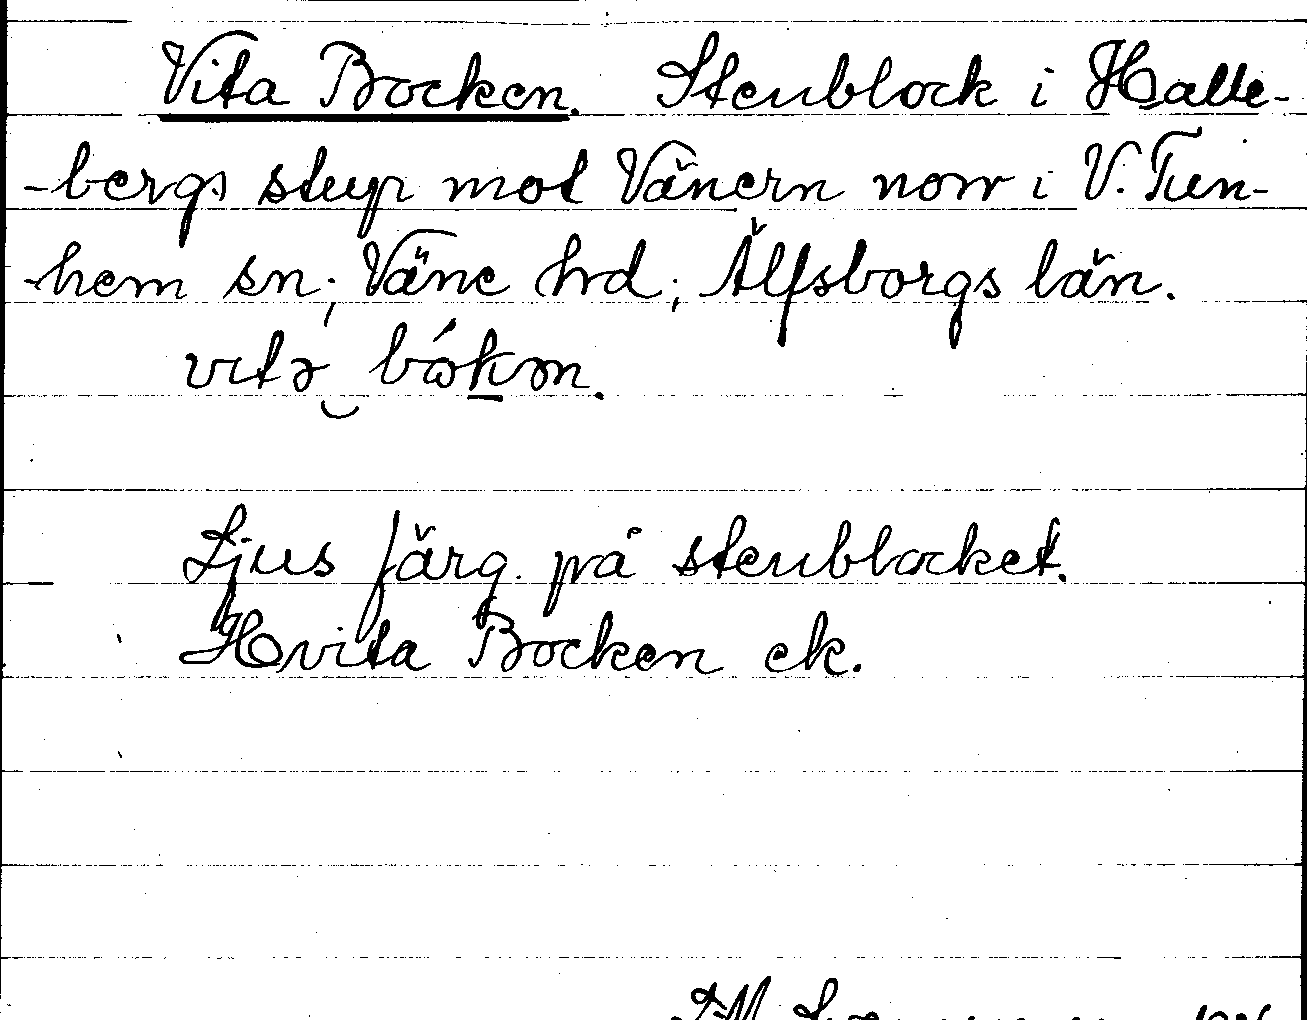 Vita Bocken. Stenblock i Halle-
-bergs stup mot Vänern norr i V. Tun-
-hem sn; Väne hd; Älfsborgs län.
vitə bɷ́kən.
Ljus färg på stenblocket.
Hvita Bocken ek.